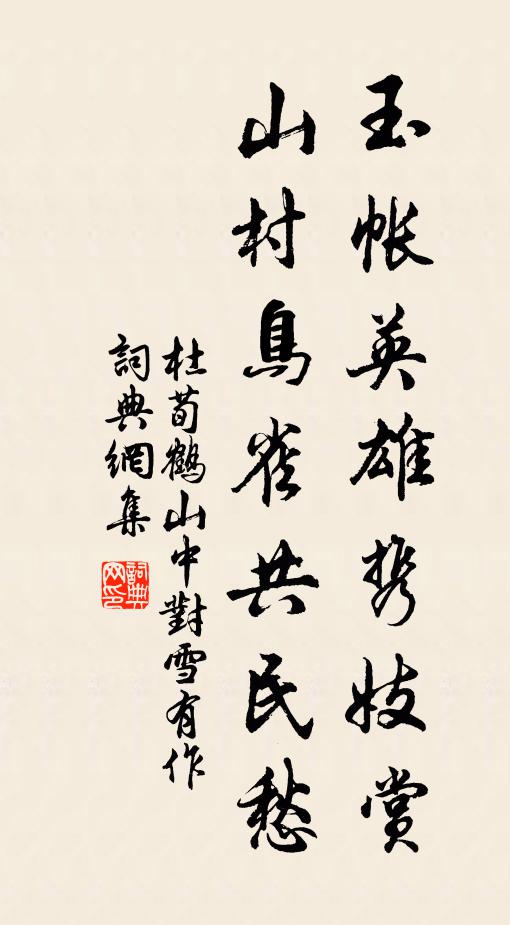 玉帐英雄携妓赏
山村鳥雀共民愁
杜荀鶴山中對雪有作
詞典網集
詞典网印